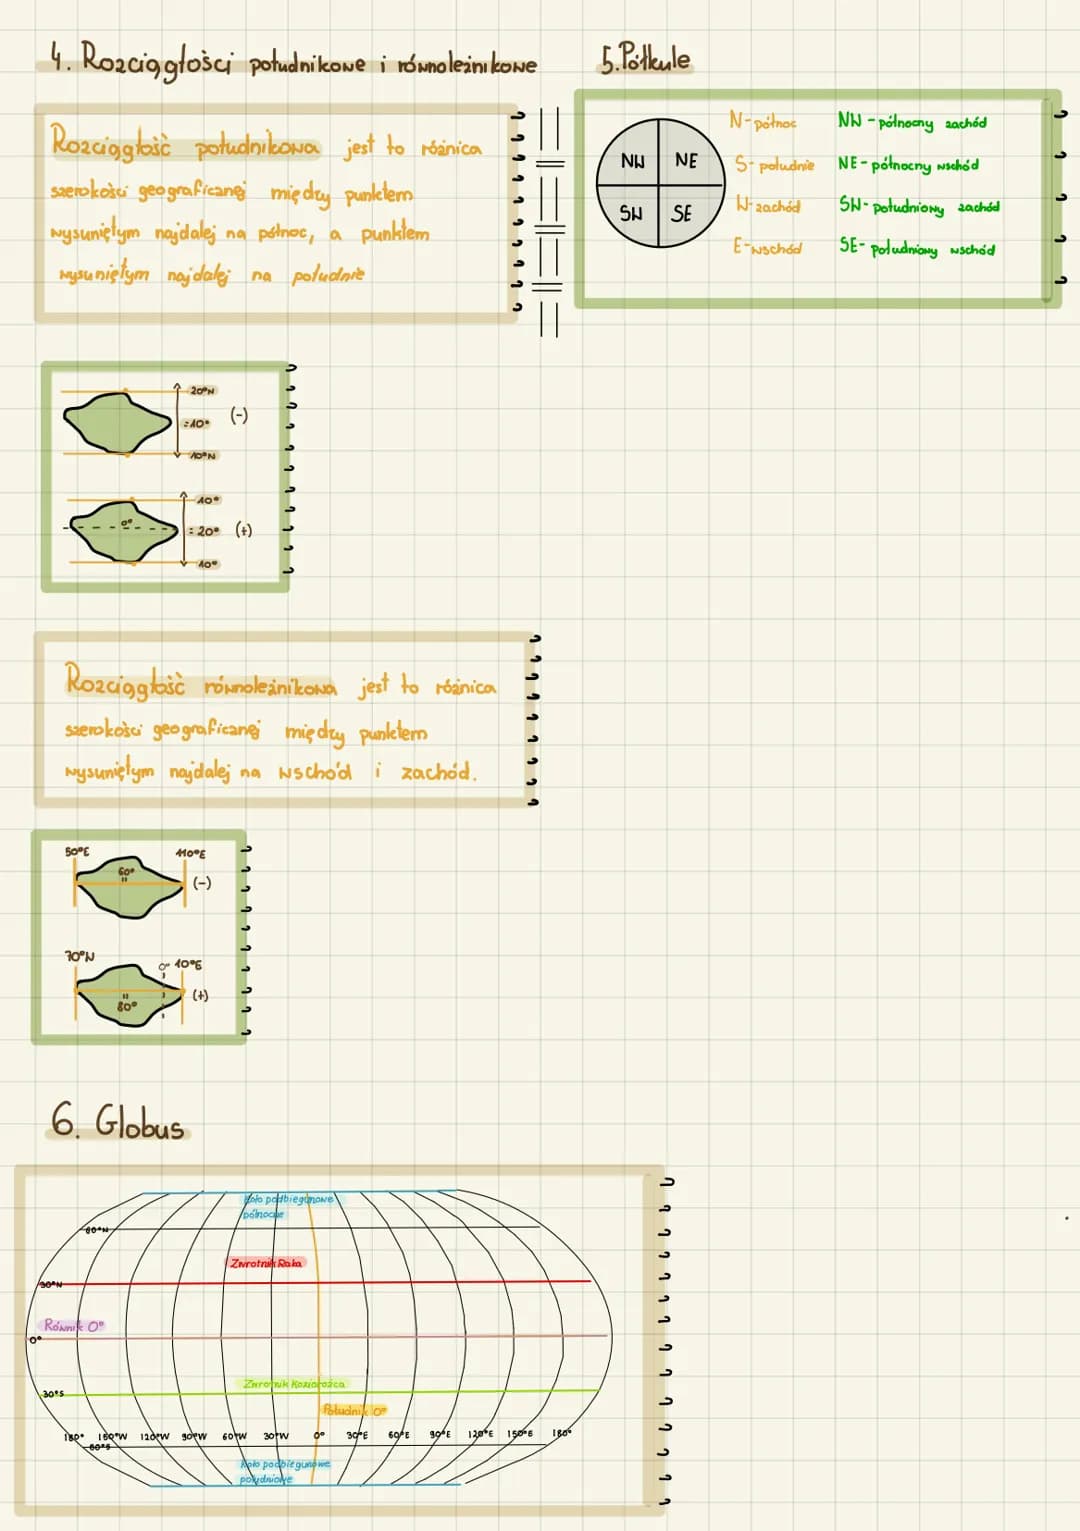 4. Rozciągłości południkowe i równoleżnikowe
Rozciągłość południkowa jest to różnica
szerokości geograficznej między punktem
wysuniętym najdalej na północ, a punktem
wysuniętym najdalej na południe
5. Półkule
NW NE
SW SE
N-północ
S-południe
W-zachód
E-wschód
NW - północny zachód
NE - północny wschód
SW - południowy zachód
SE - południowy wschód
20°N
=10° (-)
10°N
10°
0° = 20° (+)
10°
Rozciągłość równoleżnikowa jest to różnica
szerokości geograficznej między punktem
wysuniętym najdalej na wschód i zachód.
50°E 110°E
60°
= (-)
70°W 0° 10°E
= (+)
80°
6. Globus
Koło podbiegunowe
północne
60°N
Zwrotnik Raka
30°N
Równik 0°
0°
Zwrotnik Koziorożca
30°S
Południk 0°
180° 150°W 120°W 90°W 60°W 30°W 0° 30°E 60°E 90°E 120°E 150°E 180°
60°S
Koło podbiegunowe
południowe